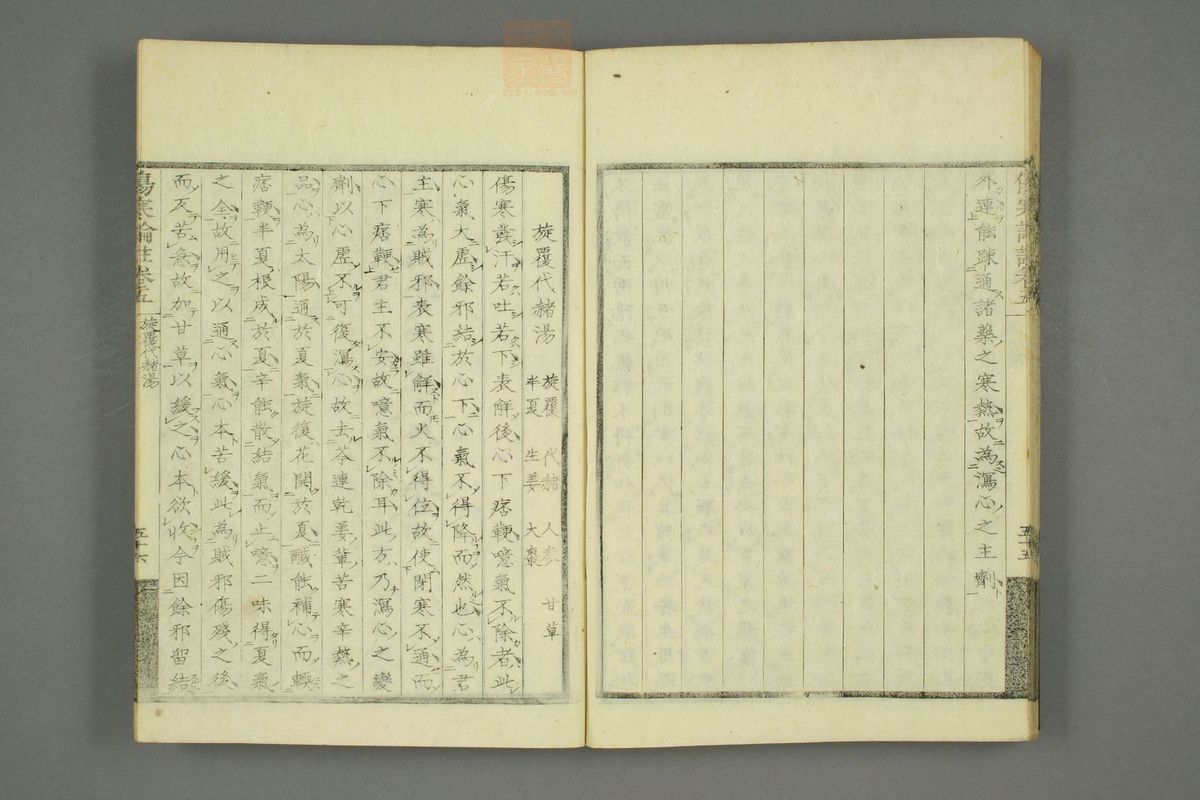 外連能疎通諸藥之寒熱故為瀉心之主劑
五十五
旋覆代赭湯
旋覆 代赭 人参 甘草
半夏 生姜 大棗
傷寒發汗若吐若下表解後心下痞鞕噫氣不除者此
心氣大虛餘邪結於心下心氣不得降而然也心為君
主寒為賊邪表寒雖解而火不得位故使閉寒不通而
心下痞鞕君主不安故噫氣不除耳此方乃瀉心之變
劑以心虛不可復瀉心故去芩連乾姜輩苦寒辛熱之
品心為太陽通於夏氣旋復花開於夏鹹能補心而軟
痞鞕半夏根成於夏辛能散結氣而止噫二味得夏氣
之全故用之以通心氣心本苦緩此為賊邪傷殘之後
而反苦急故加甘草以緩之心本欲收今因餘邪留結
傷寒論註卷五
旋覆代赭湯
五十六